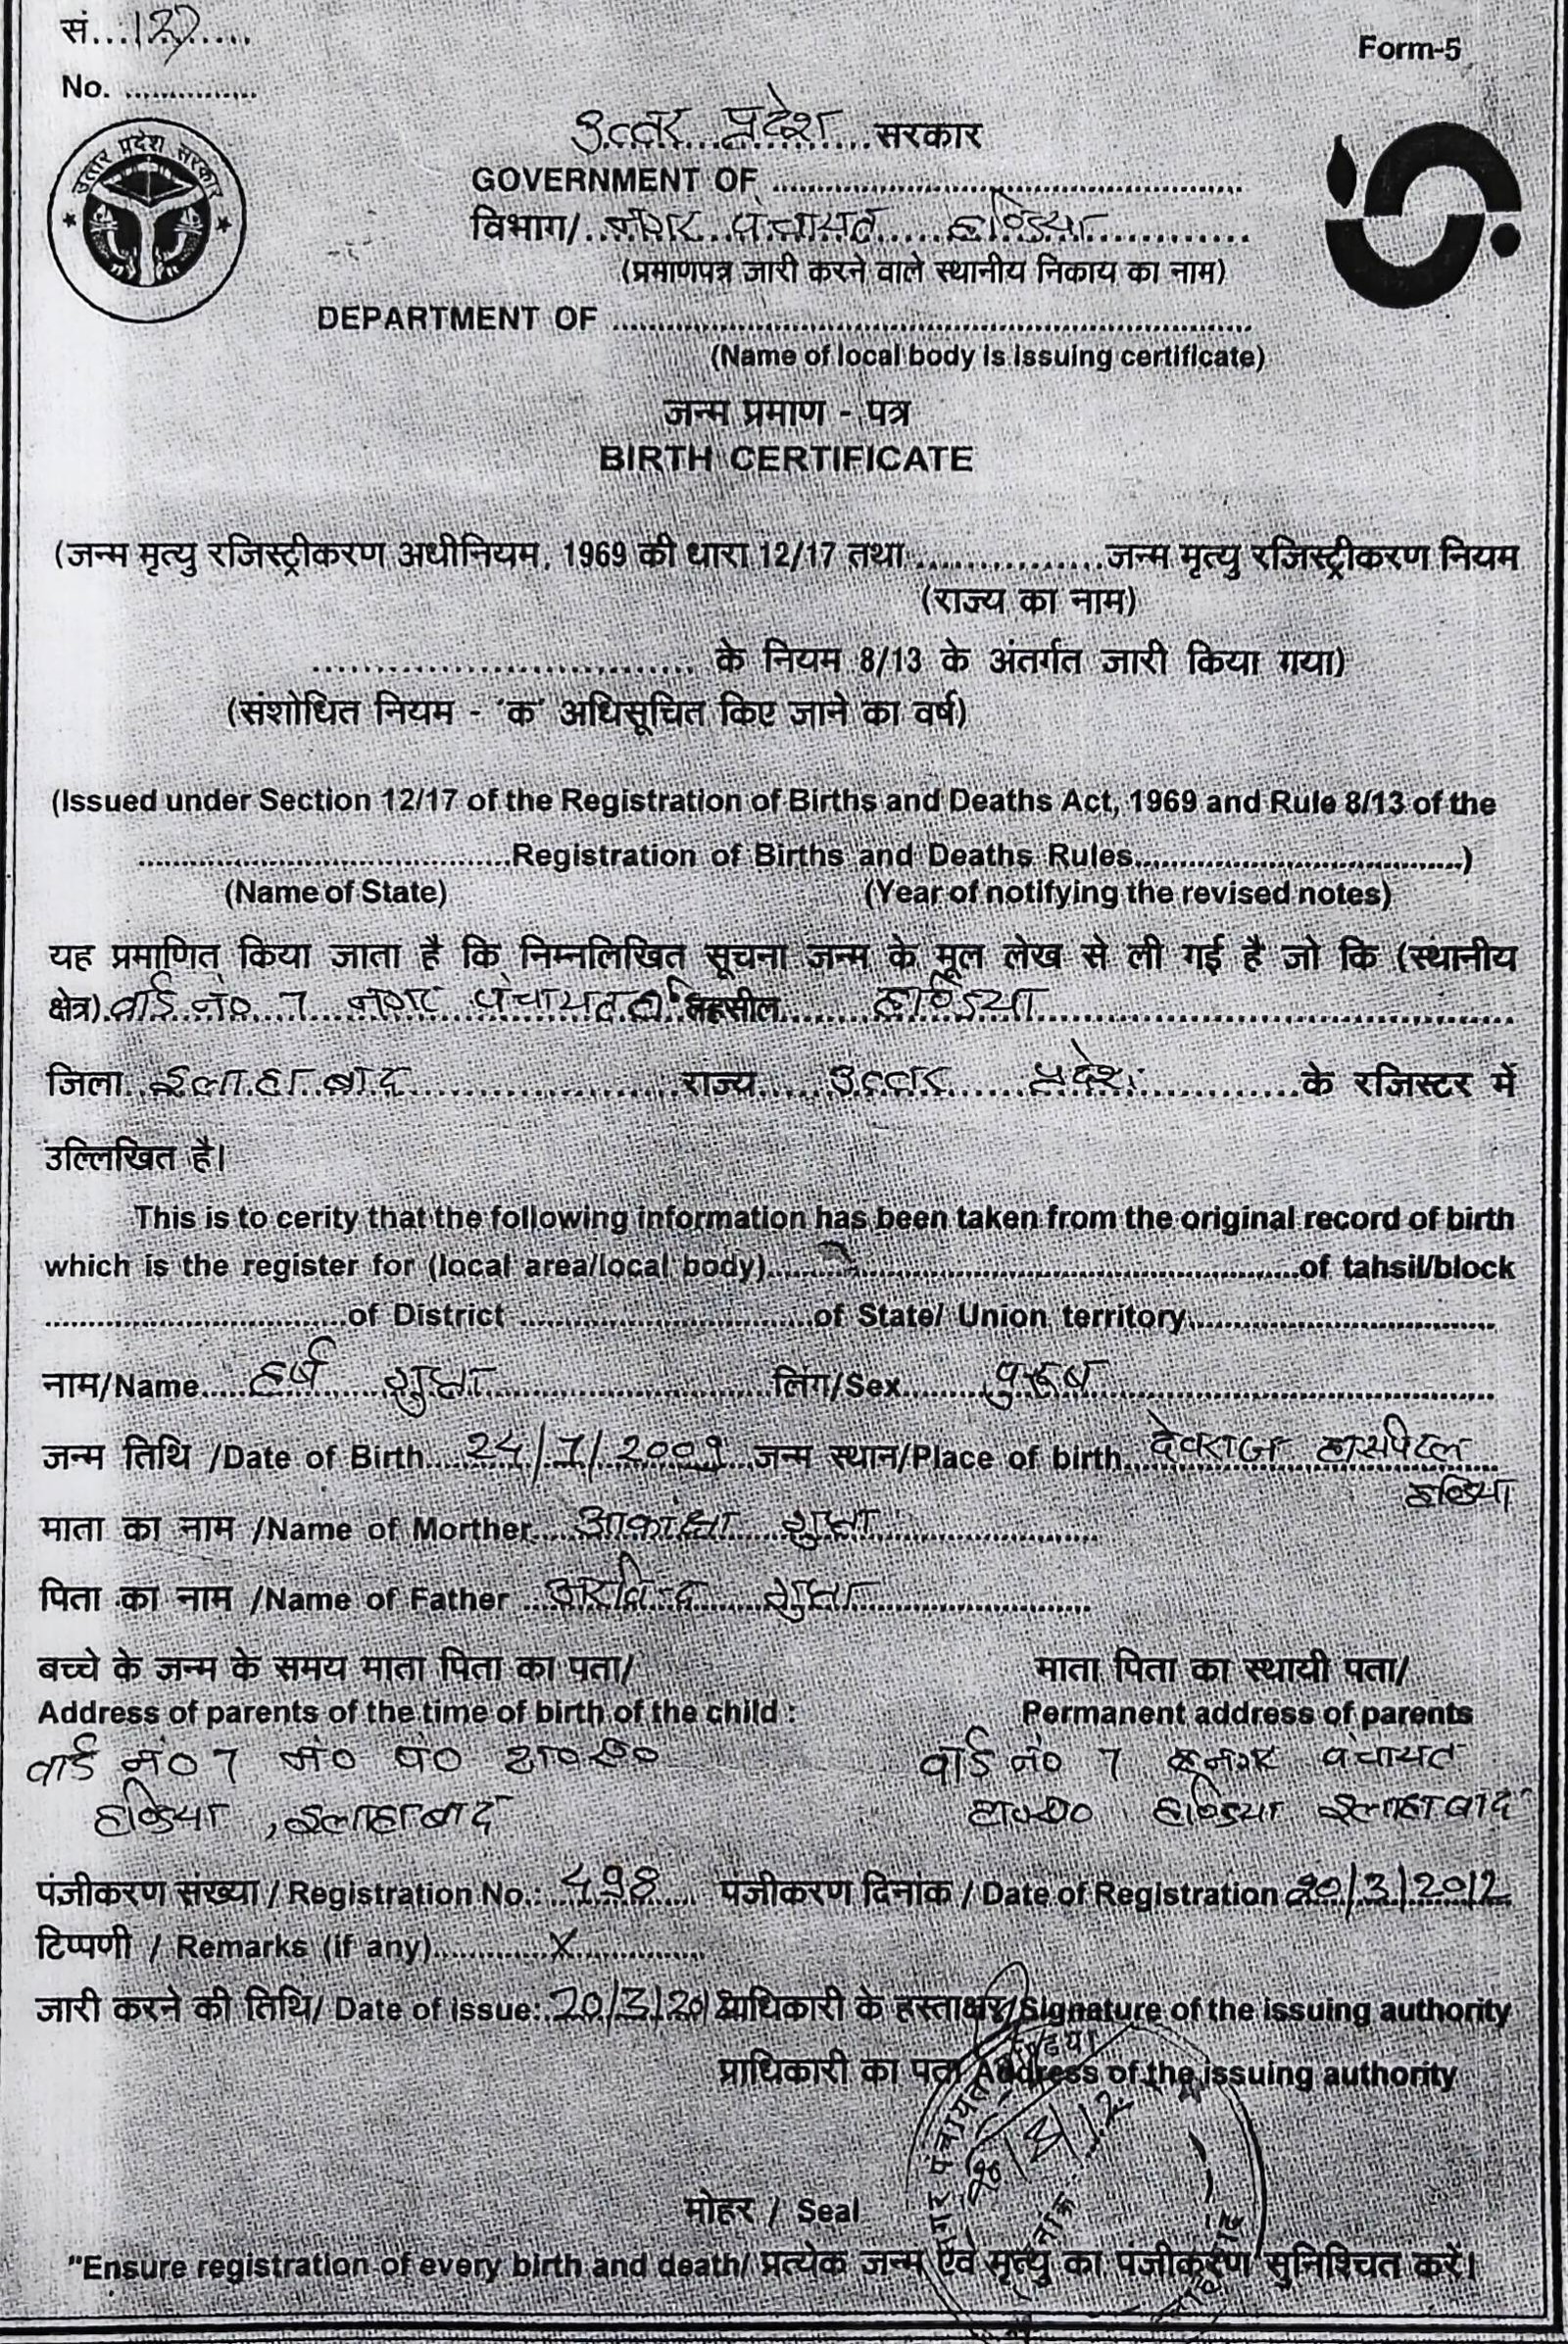 सं...137......
No. ...............
Form-5
उत्तर प्रदेश सरकार
उत्तर प्रदेश सरकार
GOVERNMENT OF ................
विभाग/ नगर पंचायत हण्डिया
(प्रमाणपत्र जारी करने वाले स्थानीय निकाय का नाम)
DEPARTMENT OF ................
(Name of local body is issuing certificate)
जन्म प्रमाण - पत्र
BIRTH CERTIFICATE
(जन्म मृत्यु रजिस्ट्रीकरण अधीनियम, 1969 की धारा 12/17 तथा ................ जन्म मृत्यु रजिस्ट्रीकरण नियम
(राज्य का नाम)
................ के नियम 8/13 के अंतर्गत जारी किया गया)
(संशोधित नियम - 'क' अधिसूचित किए जाने का वर्ष)
(Issued under Section 12/17 of the Registration of Births and Deaths Act, 1969 and Rule 8/13 of the
................Registration of Births and Deaths Rules................)
(Name of State) (Year of notifying the revised notes)
यह प्रमाणित किया जाता है कि निम्नलिखित सूचना जन्म के मूल लेख से ली गई है जो कि (स्थानीय
क्षेत्र) वार्ड नं० 7 नगर पंचायत तहसील हण्डिया
जिला इलाहाबाद राज्य उत्तर प्रदेश के रजिस्टर में
उल्लिखित है।
This is to cerity that the following information has been taken from the original record of birth
which is the register for (local area/local body)................of tahsil/block
................of District ................of State/ Union territory................
नाम/Name हर्ष गुप्ता लिंग/Sex पुरूष
जन्म तिथि /Date of Birth 24/7/2009 जन्म स्थान/Place of birth देवराज हास्पिटल
हण्डिया
माता का नाम /Name of Morther आकांक्षा गुप्ता
पिता का नाम /Name of Father अरविन्द गुप्ता
बच्चे के जन्म के समय माता पिता का पता/ माता पिता का स्थायी पता/
Address of parents of the time of birth of the child : Permanent address of parents
वार्ड नं० 7 न० पं० वार्ड नं० 7 नगर पंचायत
हण्डिया, इलाहाबाद हण्डिया इलाहाबाद
पंजीकरण संख्या / Registration No.: 498 पंजीकरण दिनांक / Date of Registration 20/3/2012
टिप्पणी / Remarks (if any) X
जारी करने की तिथि/ Date of issue: 20/3/2012 प्राधिकारी के हस्ताक्षर/Signature of the issuing authority
प्राधिकारी का पता Address of the issuing authority
नगर पंचायत
मोहर / Seal
"Ensure registration of every birth and death/ प्रत्येक जन्म एंवं मृत्यु का पंजीकरण सुनिश्चित करें।